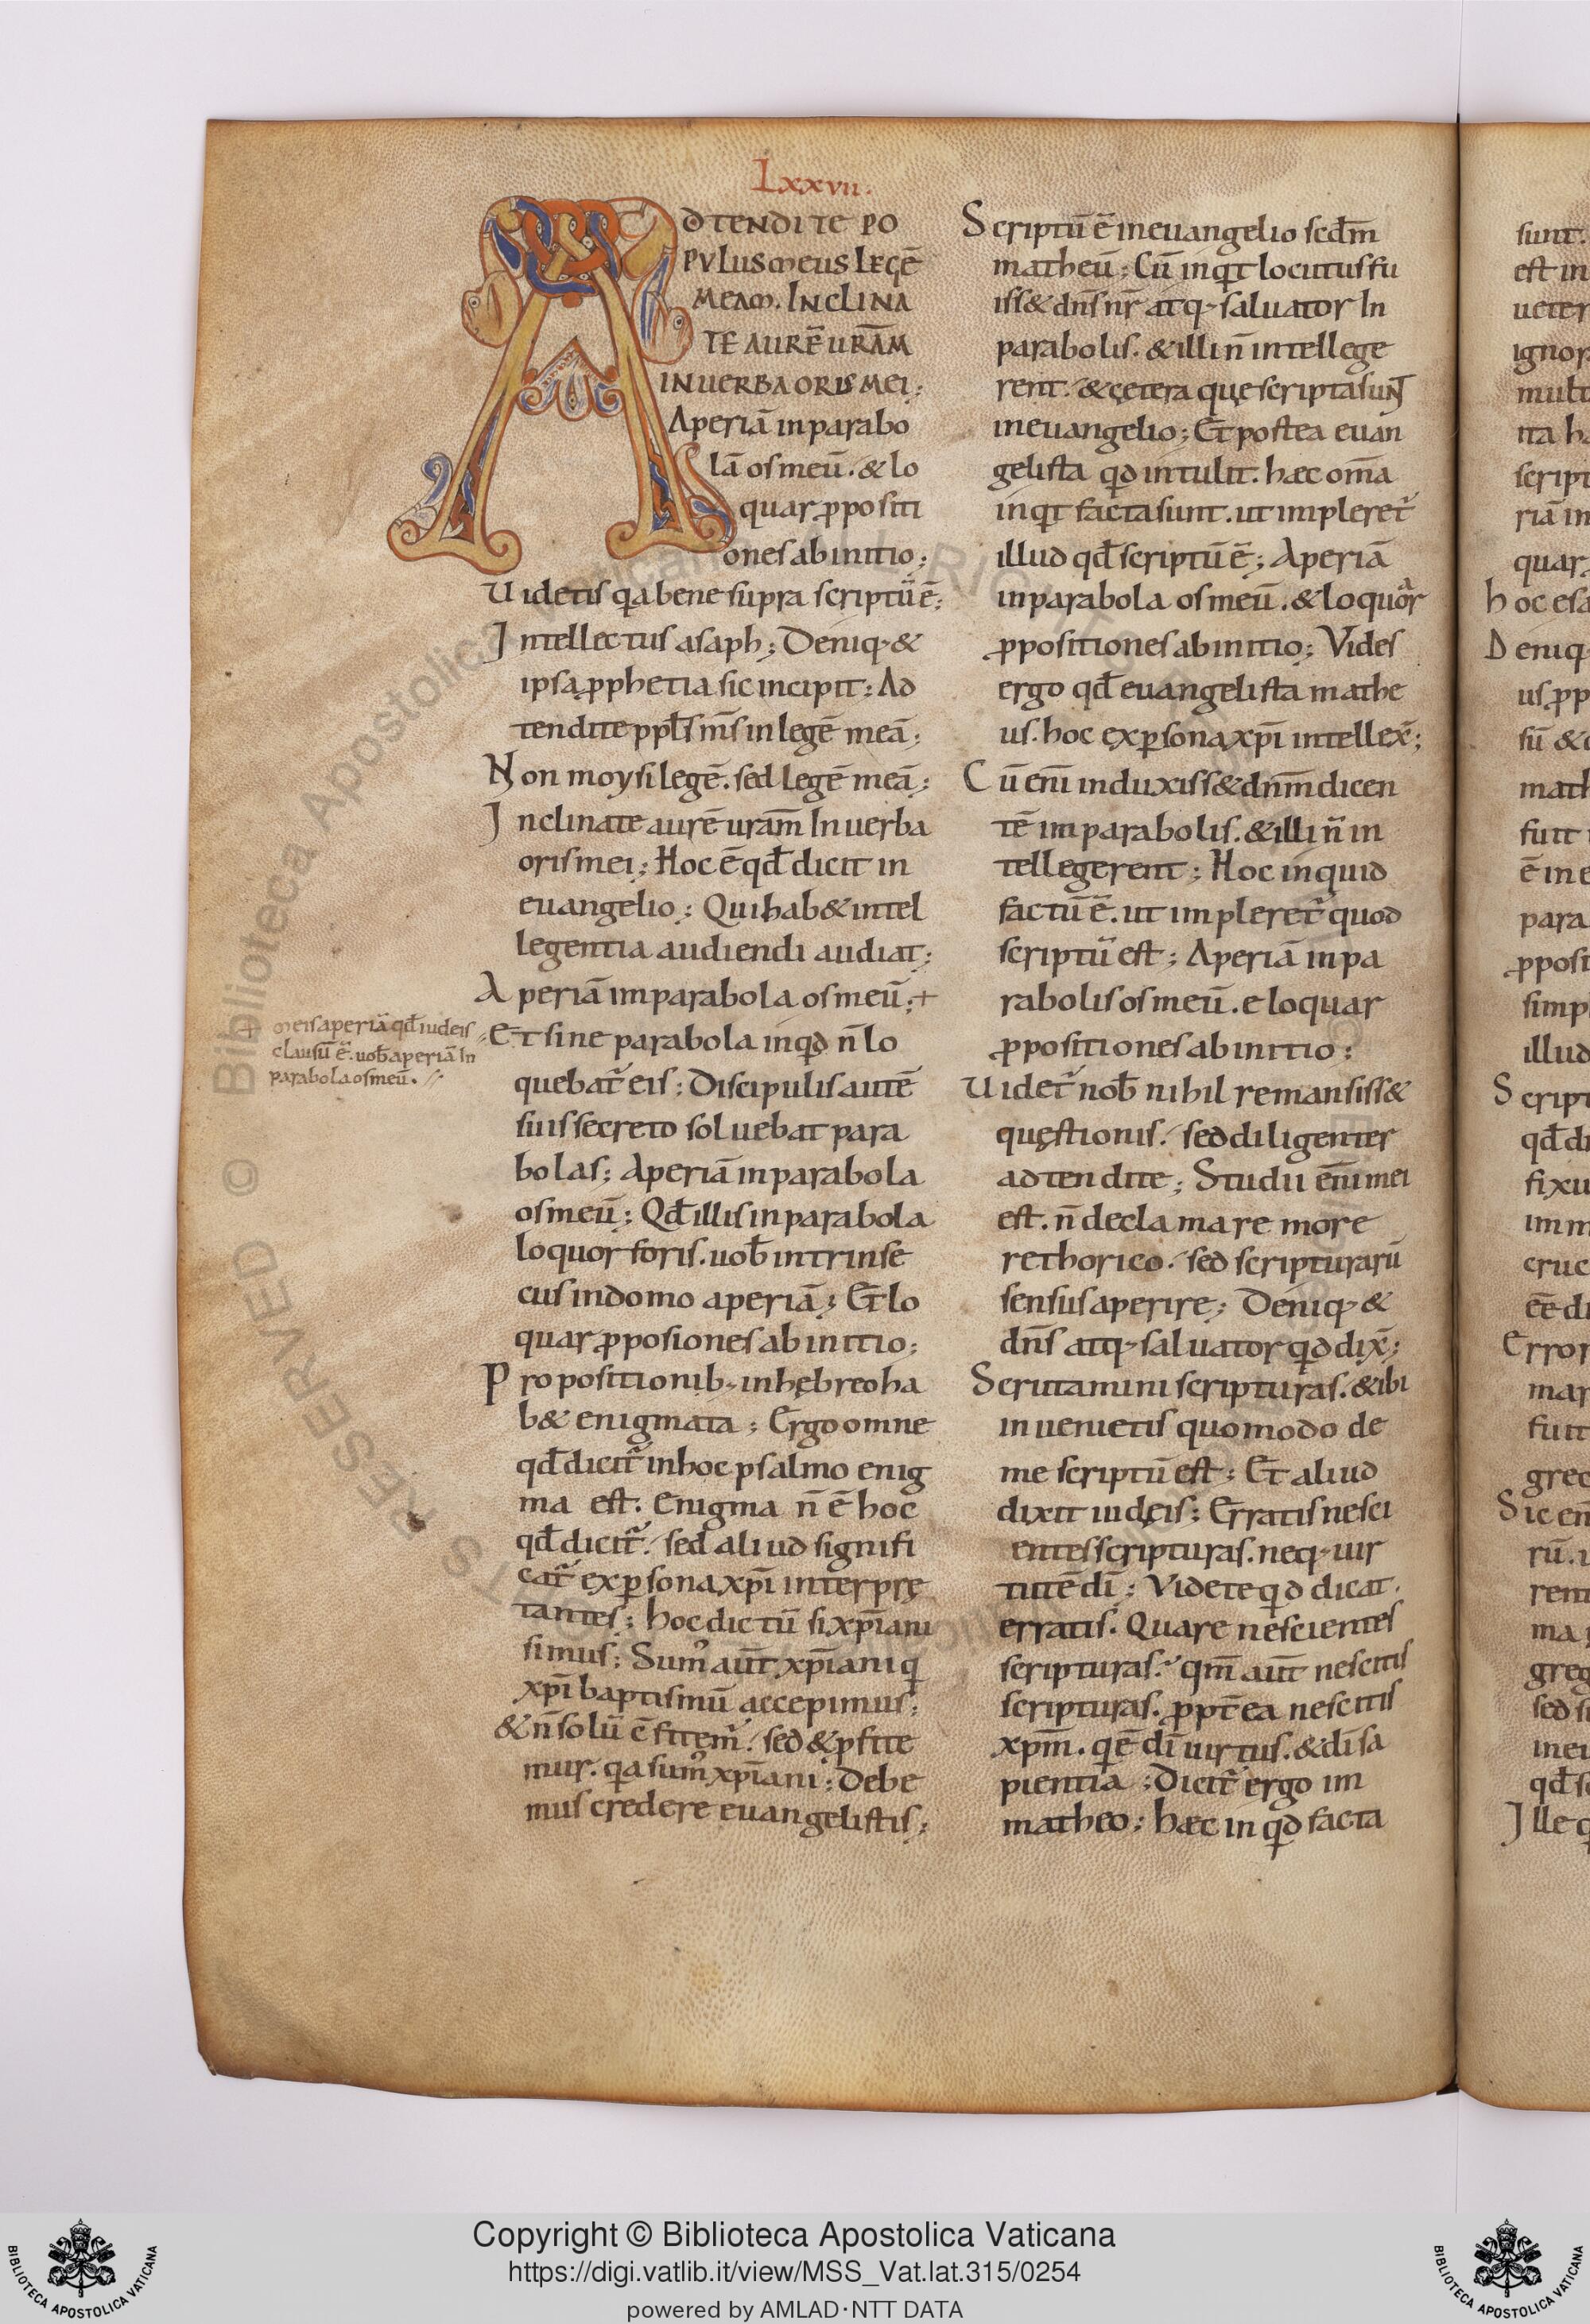 Lxxvii.
ADTENDITE PO
PVLUS MEUS LEGĒ
MEAM. INCLINA
TE AURĒ URĀM
IN UERBA ORIS MEI;
Aperiā in parabo
lā os meū. & lo
quar ꝓpositi
ones ab initio;
Uidetis qa bene supra scriptū ē;
Intellectus asaph; Deniq; &
ipsa ꝓphetia sic incipit: Ad
tendite ppl̄s m̄s in legē meā;
Non moysi legē. sed legē meā;
Inclinate aurē urām In uerba
oris mei; Hoc ē qđ dicit in
euangelio; Qui hab& intel
legentia audiendi audiat;
Aperiā im parabola os meū; +
+ meis aperiā qđ iudeis
clausū ē. uob̄ aperiā In
parabola os meū.
Et sine parabola inqd n̄ lo
quebat̄ eis; Discipulis autē
suis secreto soluebat para
bolas; Aperiā in parabola
os meū; Qđ illis in parabola
loquor foris. uob̄ intrinse
cus in domo aperiā; Et lo
quar ꝓposiones ab initio;
Propositionib; in hębreo ha
b& enigmata; Ergo omne
qđ dicit̄ in hoc psalmo enig
ma est. Enigma n̄ ē hoc
qđ dicit̄. sed aliud signifi
cat̄ ex ꝑsona xp̄i interprę
tantes; hoc dictū si xp̄iani
simus; Sum᾿ aūt xp̄iani q
xp̄i baptismū accepimus;
& n̄ solū ē fitem᾿. sed & ꝓfite
mur. qa sum᾿ xp̄iani; Debe
mus credere euangelistis;
Scriptū ē in euangelio scd̄m
matheū; Cū inqt locutus fu
iss& dn̄s nr̄ atq; saluator In
parabolis. & illi n̄ intellege
rent. & cętera quę scripta sunt
in euangelio; Et postea euan
gelista qd intulit. hæc om̄a
inqt facta sunt. ut impleret̄
illud qđ scriptū ē; Aperiā
in parabola os meū. & loquar
ꝓpositiones ab initio; Vides
ergo qđ euangelista mathe
us. hoc ex ꝑsona xp̄i intellex̄;
Cū enī induxiss& dn̄m dicen
tē im parabolis. & illi n̄ in
tellegerent; Hoc inquid
factū ē. ut impleret̄ quod
scriptū est; Aperiā in pa
rabolis os meū. e loquar
ꝓpositiones ab initio;
Uidet̄ nob̄ nihil remansiss&
quęstionis. sed diligenter
adtendite; Studii enī mei
est. n̄ declamare more
rethorico. sed scripturarū
sensus aperire; Deniq; &
dn̄s atq; saluator qd dix̄;
Scrutamini scripturas. & ibi
inuenietis quomodo de
me scriptū est; Et aliud
dixit iudęis; Erratis nesci
entes scripturas. neq; uir
tutē dī; Videte qd dicat.
erratis. Quare nescientes
scripturas. qm̄ aūt nescitis
scripturas. ꝓpt̄ea nescitis
xp̄m. q ē dī uirtus. & dī sa
pientia; Dicit̄ ergo im
matheo; hæc inqd facta
Copyright © Biblioteca Apostolica Vaticana
https://digi.vatlib.it/view/MSS_Vat.lat.315/0254
powered by AMLAD·NTT DATA